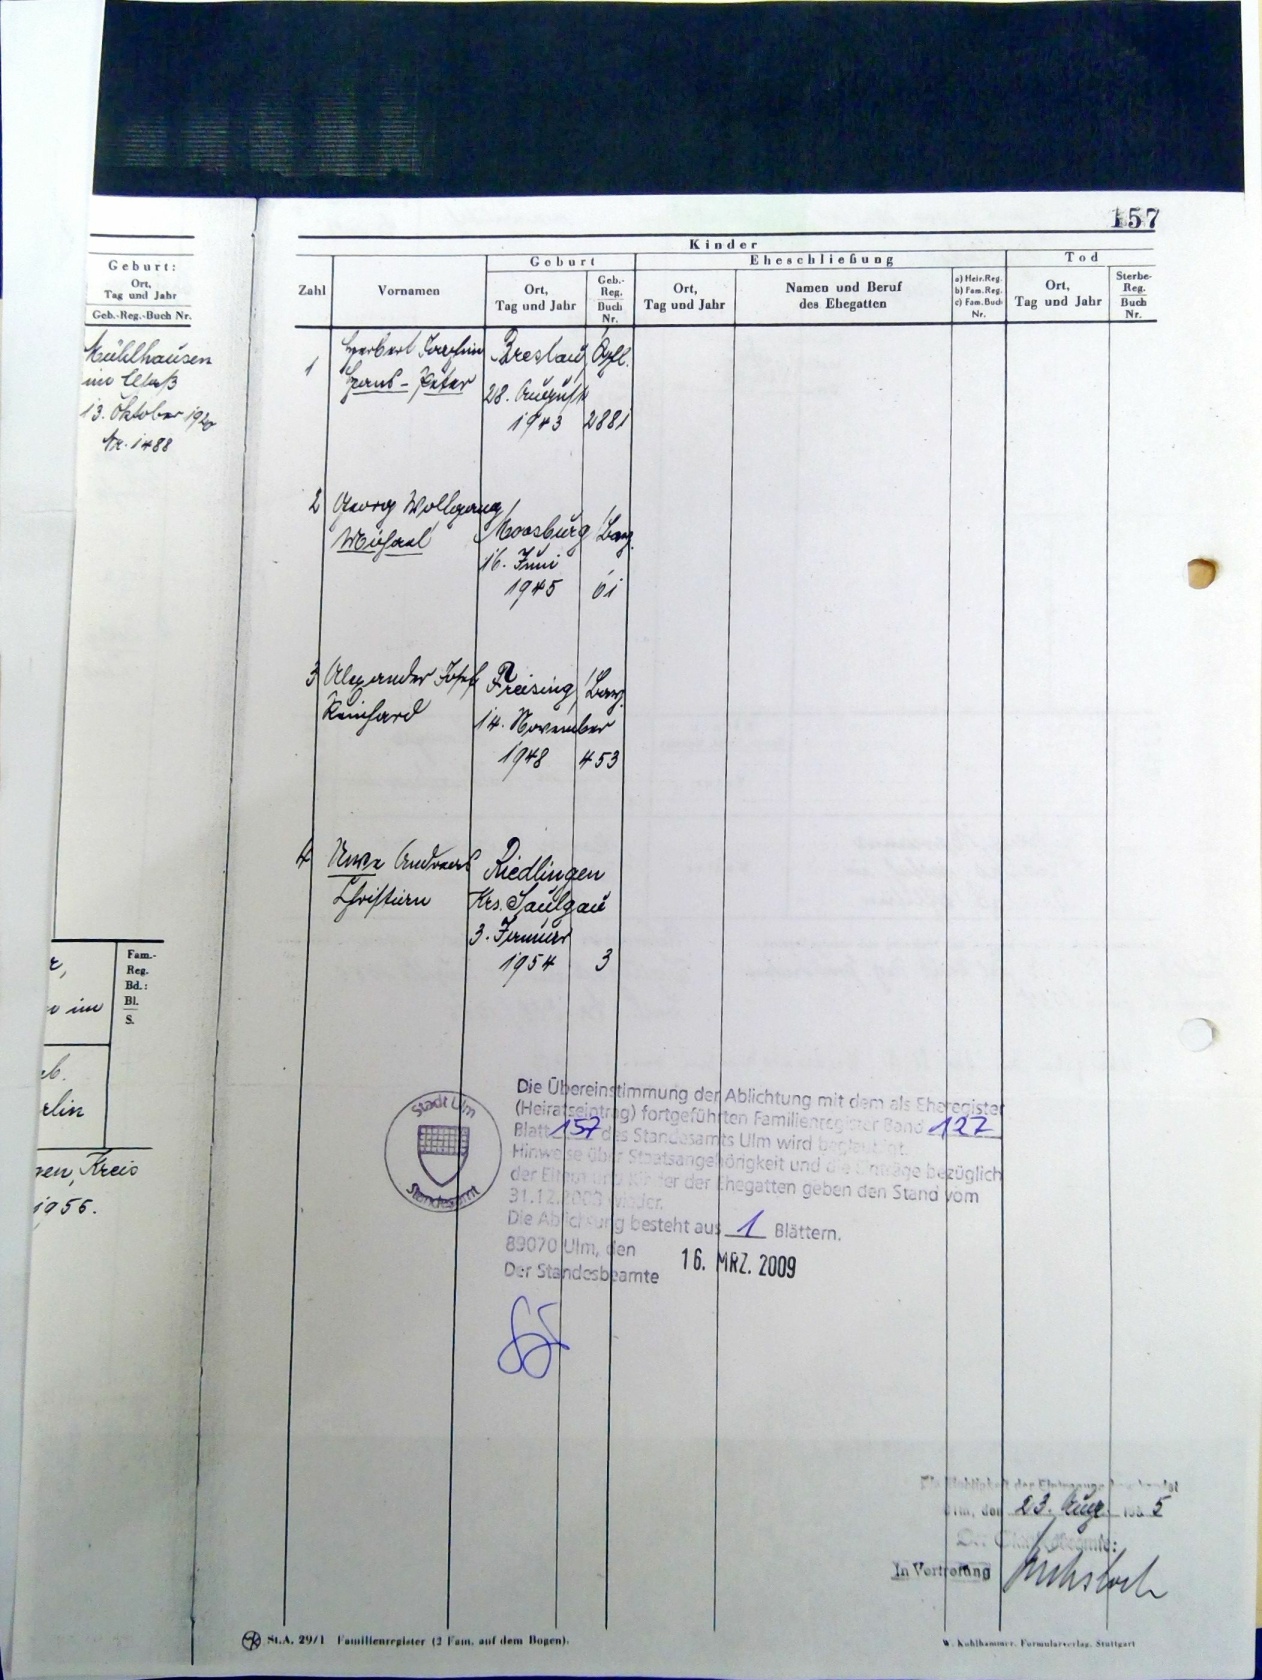 157
Kinder
Geburt
Eheschließung
Tod
Zahl
Vornamen
Ort,
Tag und Jahr
Geb.-
Reg.
Buch
Nr.
Ort,
Tag und Jahr
Namen und Beruf
des Ehegatten
a) Heir.Reg.
b) Fam.Reg.
c) Fam.Buch
Nr.
Ort,
Tag und Jahr
Sterbe-
Reg.
Buch
Nr.
Geburt:
Ort,
Tag und Jahr
Geb.-Reg.-Buch Nr.
Mühlhausen
im Elsaß
13. Oktober 1920
Nr. 1488
1
Herbert Joachim
Hans-Peter
Breslau
28. August
1943
2881
2
Georg Wolfgang
Michael
Moosburg
16. Juni
1945
61
3
Alexander Josef
Reinhard
Freising
14. November
1948
453
4
Uwe Andreas
Christian
Riedlingen
Krs. Saulgau
3. Januar
1954
3
Fam.-
Reg.
Bd.:
Bl.
S.
im
rlin
gen, Kreis
Stadt Ulm
Standesamt
Die Übereinstimmung der Ablichtung mit dem als Eheregister
(Heiratseintrag) fortgeführten Familienregister Band 127
Blatt 157 des Standesamts Ulm wird beglaubigt.
Hinweise über Staatsangehörigkeit und die Einträge bezüglich
der Eltern und Kinder der Ehegatten geben den Stand vom
31.12.2008 wieder.
Die Ablichtung besteht aus 1 Blättern.
89070 Ulm, den 16. MRZ. 2009
Der Standesbeamte
Ulm, den 23. Aug. 195 5
Der Standesbeamte:
In Vertretung
St.A. 29/1 Familienregister (2 Fam. auf dem Bogen).
W. Kohlhammer, Formularverlag, Stuttgart